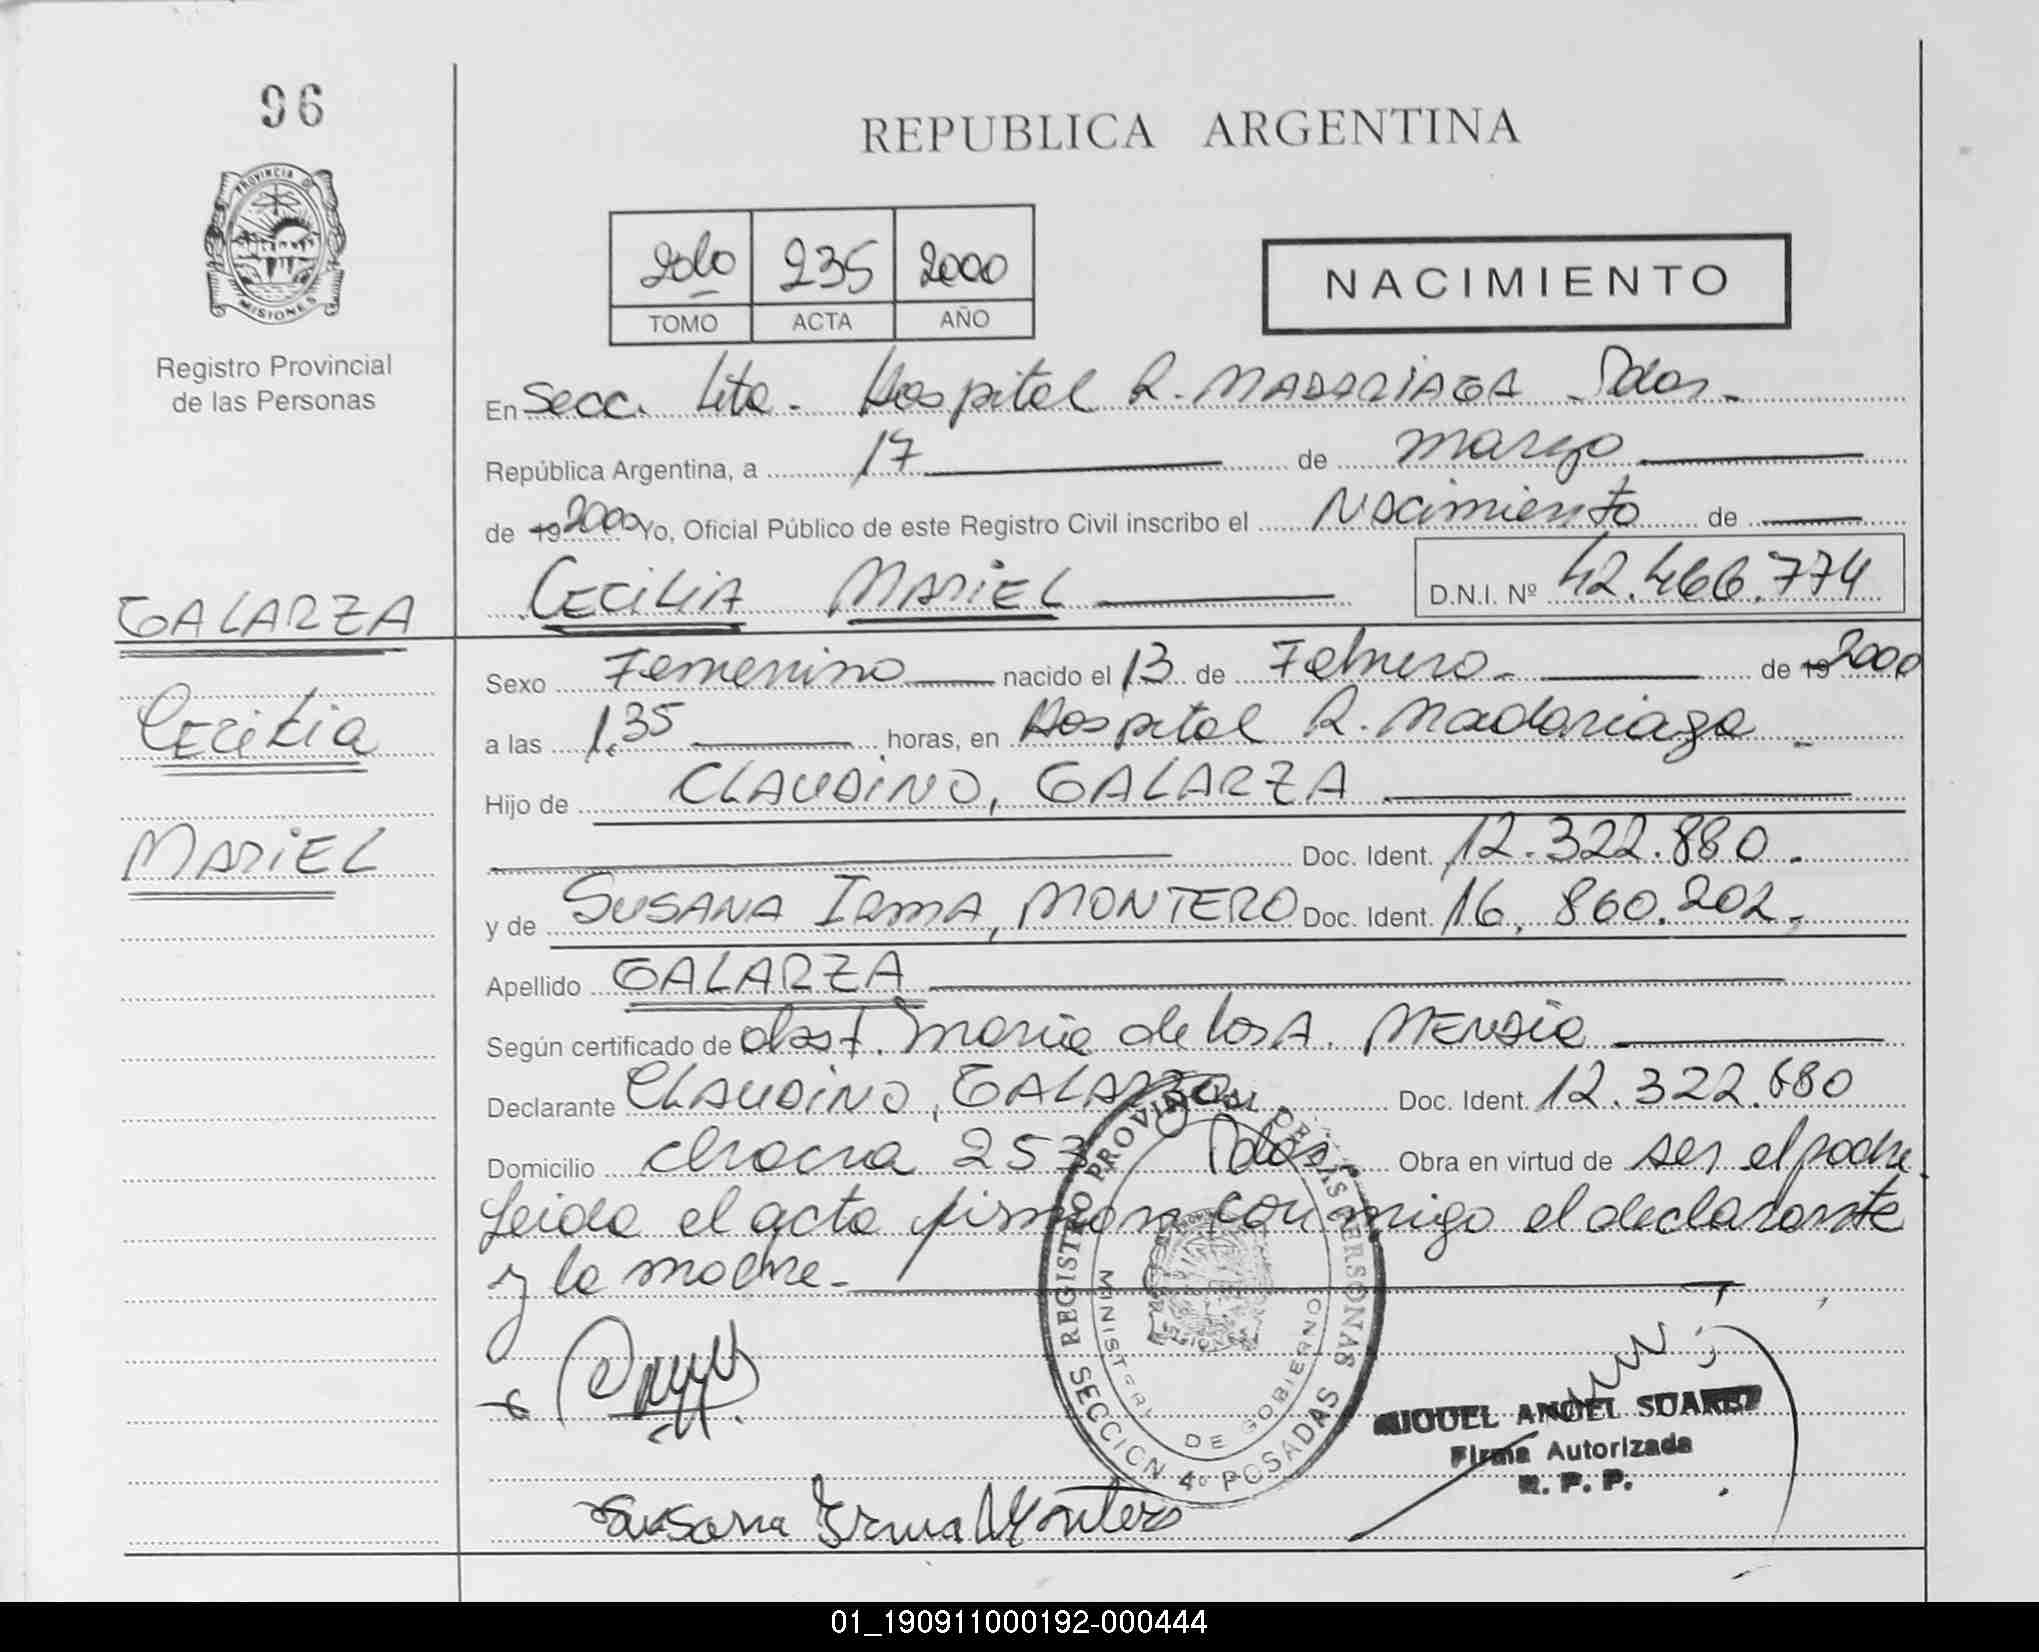 96
REPUBLICA ARGENTINA
PROVINCIA DE MISIONES
Registro Provincial
de las Personas
2000
TOMO ACTA AÑO
235
NACIMIENTO
En Secc. 4ta. Hospital R. MADARIAGA - Pdas.
República Argentina, a 17 de marzo
de 19 2000 Yo, Oficial Público de este Registro Civil inscribo el Nacimiento de
CECILIA MARIEL D.N.I. Nº 42.466.774
GALARZA
Cecilia
MARIEL
Sexo Femenino nacido el 13 de Febrero. de 19 2000
a las 1,35 horas, en Hospital R. Madariaga
Hijo de CLAUDINO, GALARZA
Doc. Ident. 12.322.880.
y de SUSANA IRMA, MONTERO Doc. Ident. 16.860.202.
Apellido GALARZA
Según certificado de obst. María de los A.
Declarante CLAUDINO, GALARZA Doc. Ident. 12.322.880
Domicilio chacra 253 Pdas. Obra en virtud de ser el padre.
Leida el acta firman con migo el declarante
y la madre.
REGISTRO PROVINCIAL DE LAS PERSONAS
MINISTERIO DE GOBIERNO
SECCION 4º POSADAS
MIGUEL ANGEL SUAREZ
Firma Autorizada
R. P. P.
Susana Irma Montero
01_190911000192-000444